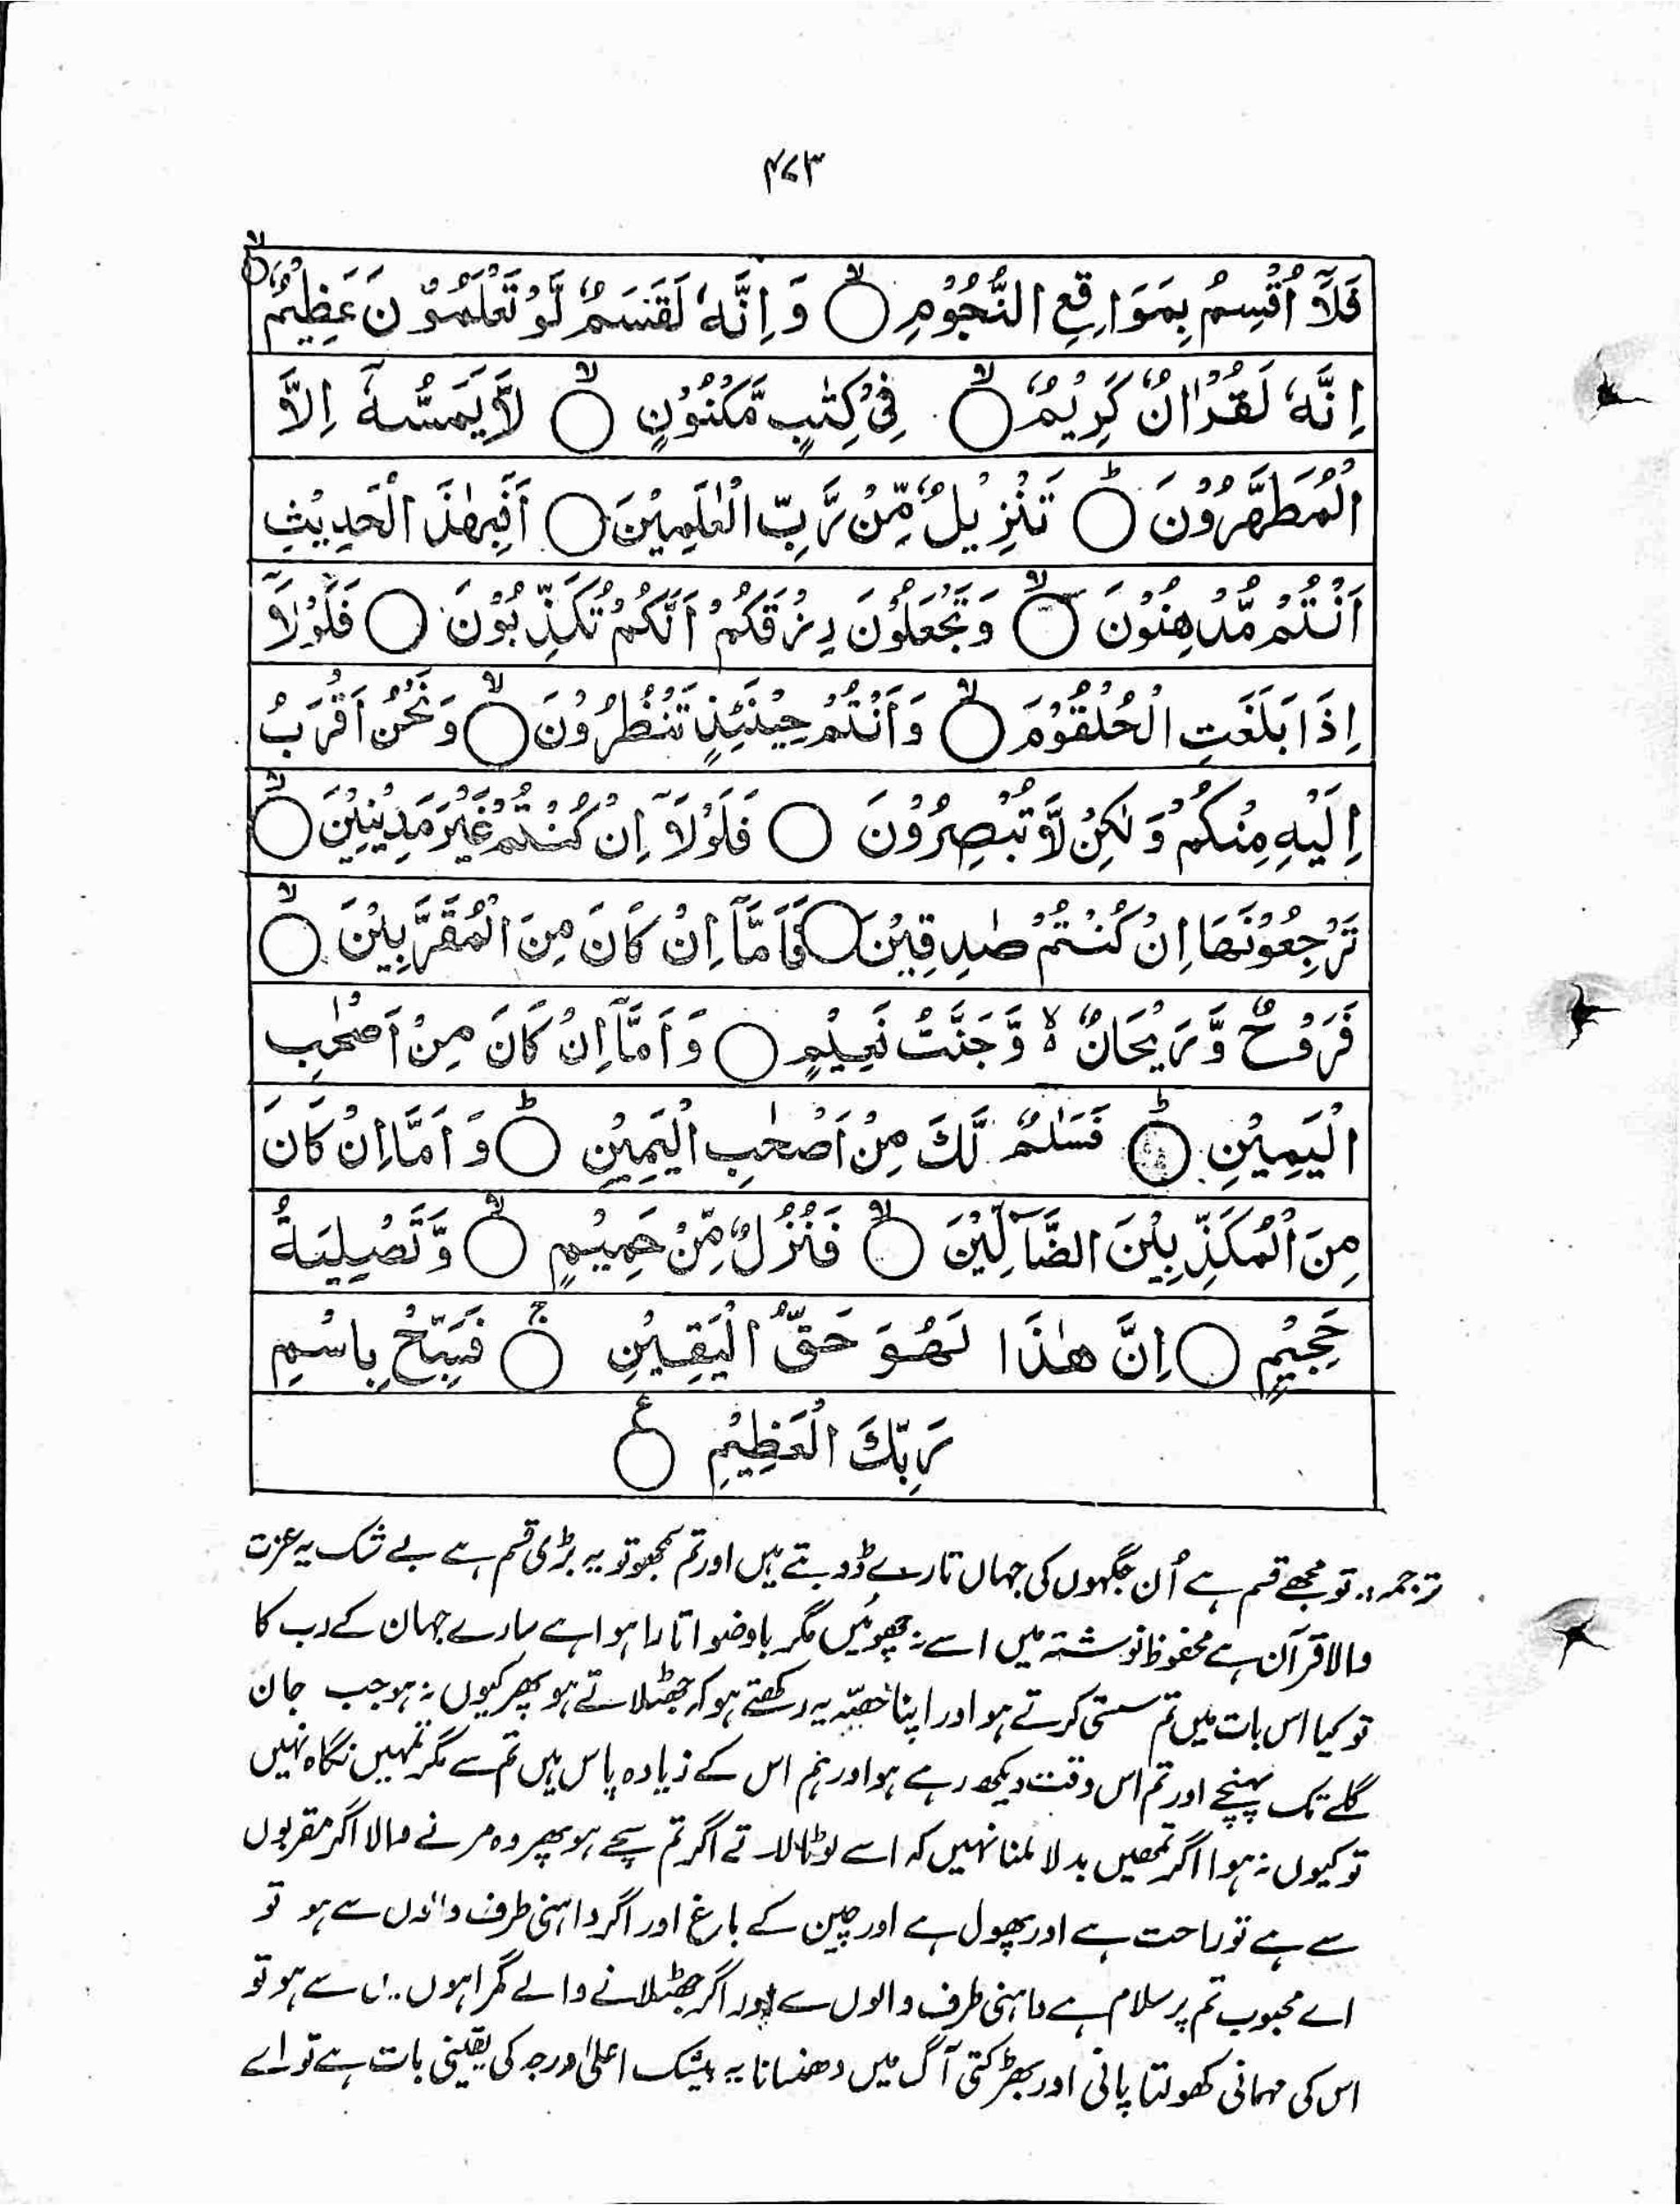 ۴۷۳
فَلَآ اُقْسِمُ بِمَوَاقِعِ النُّجُوْمِ ۙ○ وَ اِنَّهٗ لَقَسَمٌ لَّوْ تَعْلَمُوْنَ عَظِيْمٌ ۙ○
اِنَّهٗ لَقُرْاٰنٌ كَرِيْمٌ ۙ○ فِىْ كِتٰبٍ مَّكْنُوْنٍ ۙ○ لَّا يَمَسُّهٗٓ اِلَّا
الْمُطَهَّرُوْنَ ؕ○ تَنْزِيْلٌ مِّنْ رَّبِّ الْعٰلَمِيْنَ ○ اَفَبِهٰذَا الْحَدِيْثِ
اَنْتُمْ مُّدْهِنُوْنَ ۙ○ وَ تَجْعَلُوْنَ رِزْقَكُمْ اَنَّكُمْ تُكَذِّبُوْنَ ○ فَلَوْلَآ
اِذَا بَلَغَتِ الْحُلْقُوْمَ ۙ○ وَ اَنْتُمْ حِيْنَئِذٍ تَنْظُرُوْنَ ۙ○ وَ نَحْنُ اَقْرَبُ
اِلَيْهِ مِنْكُمْ وَ لٰكِنْ لَّا تُبْصِرُوْنَ ○ فَلَوْلَآ اِنْ كُنْتُمْ غَيْرَ مَدِيْنِيْنَ ۙ○
تَرْجِعُوْنَهَا اِنْ كُنْتُمْ صٰدِقِيْنَ ○ فَاَمَّآ اِنْ كَانَ مِنَ الْمُقَرَّبِيْنَ ۙ○
فَرَوْحٌ وَّ رَيْحَانٌ ۙ۬ وَّ جَنَّتُ نَعِيْمٍ ○ وَ اَمَّآ اِنْ كَانَ مِنْ اَصْحٰبِ
الْيَمِيْنِ ؕ○ فَسَلٰمٌ لَّكَ مِنْ اَصْحٰبِ الْيَمِيْنِ ؕ○ وَ اَمَّا اِنْ كَانَ
مِنَ الْمُكَذِّبِيْنَ الضَّآلِّيْنَ ۙ○ فَنُزُلٌ مِّنْ حَمِيْمٍ ۙ○ وَّ تَصْلِيَةُ
جَحِيْمٍ ○ اِنَّ هٰذَا لَهُوَ حَقُّ الْيَقِيْنِ ۚ○ فَسَبِّحْ بِاسْمِ
رَبِّكَ الْعَظِيْمِ ○ع
ترجمہ:۔ تو مجھے قسم ہے اُن جگہوں کی جہاں تارے ڈوبتے ہیں اور تم سمجھو تو یہ بڑی قسم ہے بے شک یہ عزت
والا قرآن ہے محفوظ نوشتہ میں اسے نہ چھوئیں مگر باوضو اتارا ہوا ہے سارے جہان کے رب کا
تو کیا اس بات میں تم سستی کرتے ہو اور اپنا حصّہ یہ رکھتے ہو کہ جھٹلاتے ہو پھر کیوں نہ ہو جب جان
گلے تک پہنچے اور تم اس وقت دیکھ رہے ہو اور ہم اس کے زیادہ پاس ہیں تم سے مگر تمہیں نگاہ نہیں
تو کیوں نہ ہوا اگر تمھیں بدلا ملنا نہیں کہ اسے لوٹا لاتے اگر تم سچے ہو پھر وہ مرنے والا اگر مقربوں
سے ہے تو راحت ہے اور پھول ہے اور چین کے باغ اور اگر داہنی طرف والوں سے ہو تو
اے محبوب تم پر سلام ہے داہنی طرف والوں سے اور اگر جھٹلانے والے گمراہوں سے ہو تو
اس کی مہمانی کھولتا پانی اور بھڑکتی آگ میں دھنسانا یہ بیشک اعلیٰ درجہ کی یقینی بات ہے تو اے